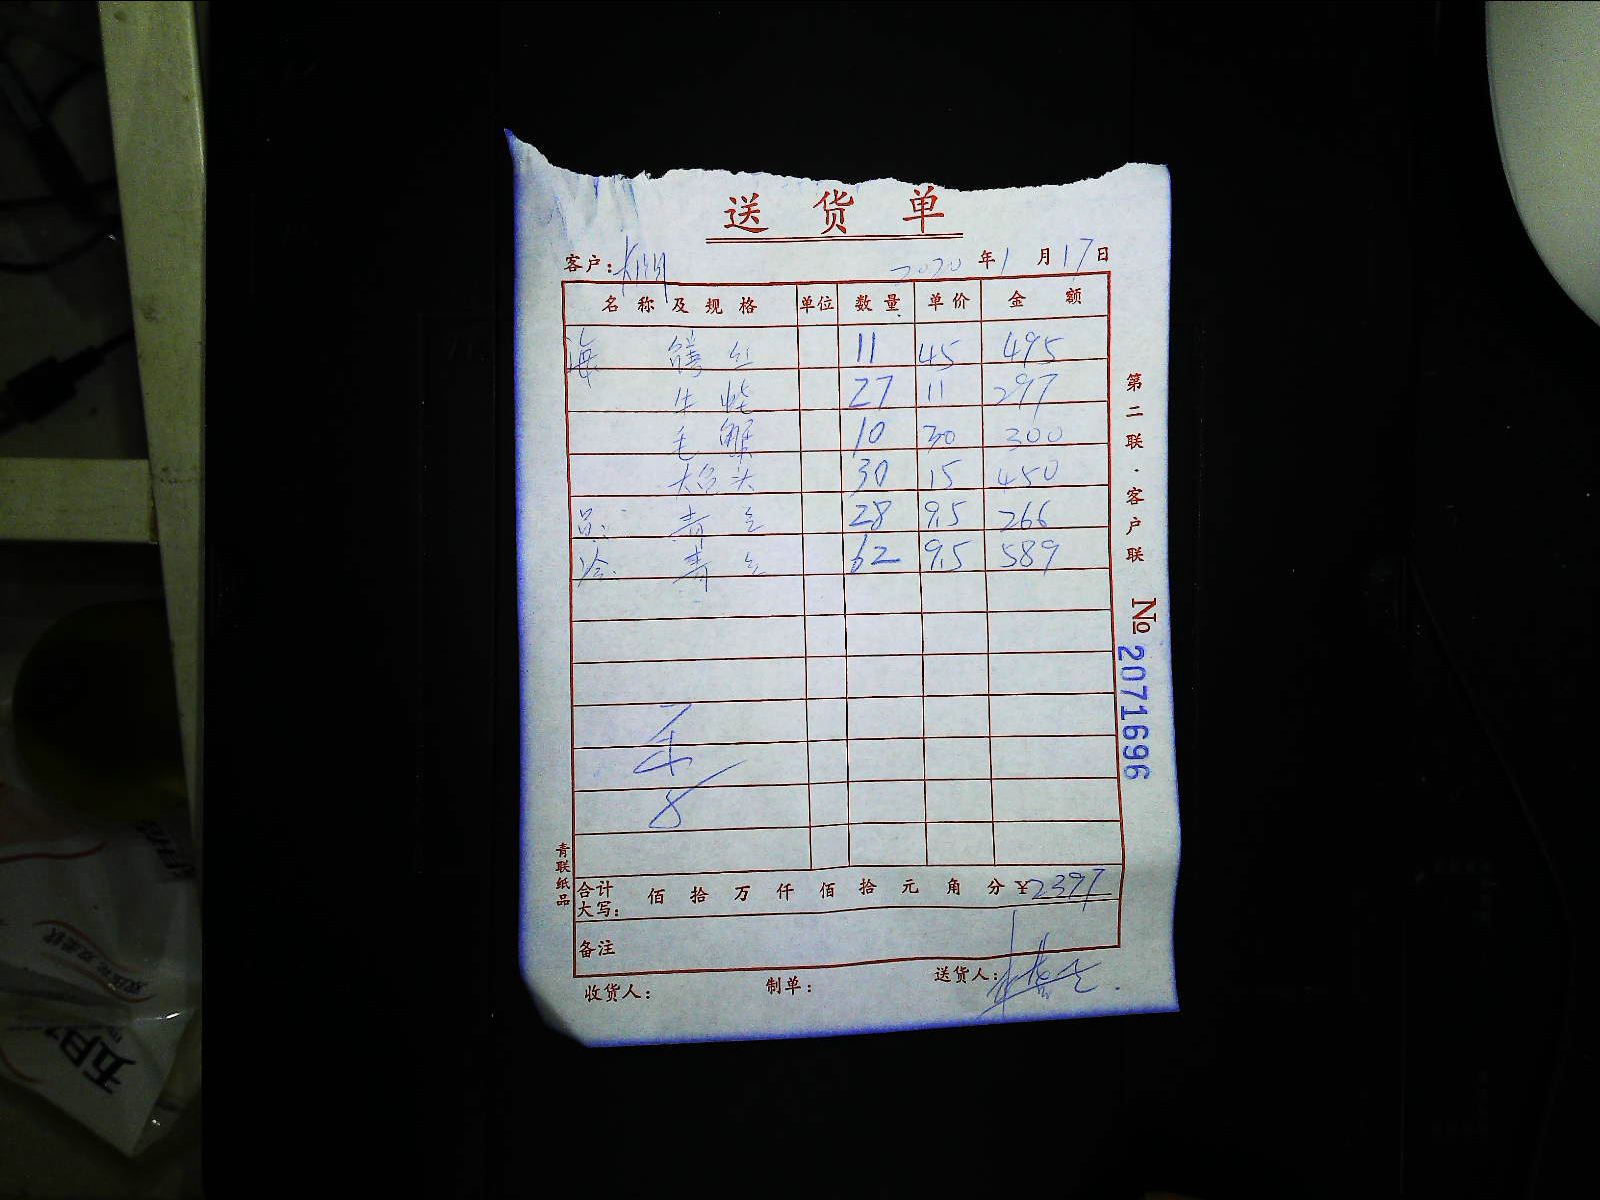 送货单
客户: 2020年1月17日
名称及规格 单位 数量 单价 金额
海 丝 11 45 495
27 11 297
毛蟹 10 30 300
大 头 30 15 450
青 28 9.5 266
冷 青 62 9.5 589
合计大写: 佰 拾 万 仟 佰 拾 元 角 分 ¥2397
备注
收货人: 制单: 送货人:
第二联·客户联
№ 2071696
青联纸品
五月